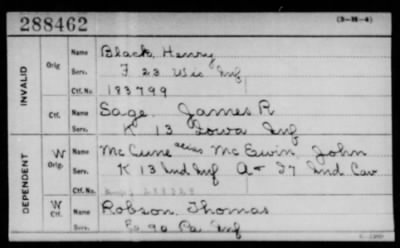 288462
(3-M-4)
INVALID
Orig
Name Black, Henry
Serv. F 23 Wis Inf
Ctf. No. 183799
Ctf.
Name Sage. James R
Serv. K 13 Iowa Inf
DEPENDENT
W Orig.
Name McCune alias McEwin, John
Serv. K 13 Ind Inf A 37 Ind Cav
Ctf. No.
W Ctf.
Name Robson, Thomas
Serv. 90 Pa Inf